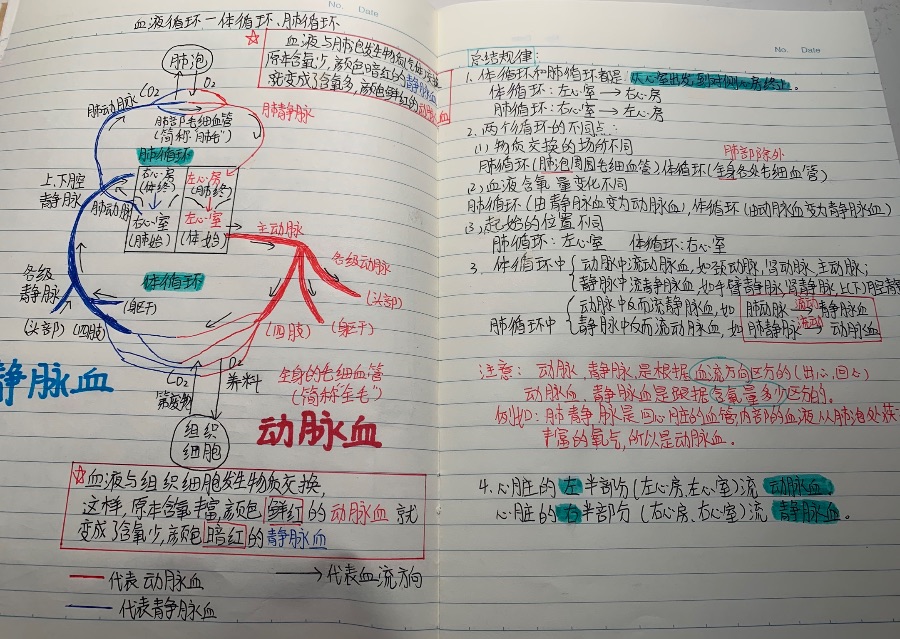 No. Date
血液循环—体循环、肺循环
☆ 血液与肺泡发生物质交换,
原本含氧少,颜色暗红的静脉血
就变成了含氧多,颜色鲜红的动脉血
肺泡
CO₂ O₂
肺动脉
肺静脉
肺部毛细血管
(简称"肺毛")
肺循环
上、下腔
静脉
右心房
(体终)
左心房
(肺终)
肺动脉
右心室
(肺始)
左心室
(体始)
主动脉
体循环
各级动脉
各级
静脉
(头部)
(躯干)
(头部)
(四肢)
(四肢)
(躯干)
静脉血
CO₂
O₂
养料
全身的毛细血管
(简称"全毛")
组织
细胞
动脉血
☆血液与组织细胞发生物质交换,
这样,原本含氧丰富,颜色鲜红的动脉血 就
变成了含氧少,颜色暗红的静脉血
代表动脉血
代表血流方向
代表静脉血
No. Date
总结规律:
1. 体循环和肺循环都是 从心室出发,到对侧心房终止。
体循环:左心室 → 右心房
肺循环:右心室 → 左心房
2. 两个循环的不同点:
(1)物质交换的场所不同
肺部除外
肺循环(肺泡周围毛细血管)体循环(全身各处毛细血管)
(2)血液含氧量变化不同
肺循环(由静脉血变为动脉血),体循环(由动脉血变为静脉血)
(3)起始的位置不同
肺循环:左心室 体循环:右心室
3. 体循环中 动脉中流动脉血,如颈动脉,肾动脉,主动脉;
静脉中流静脉血,如手臂静脉,肾静脉,上(下)腔静脉
肺循环中 动脉中反而流静脉血,如 肺动脉 流动→ 静脉血
静脉中反而流动脉血,如 肺静脉 流动→ 动脉血
注意: 动脉,静脉,是根据血流方向区分的(出心,回心)
动脉血,静脉血是根据含氧量多少区分的。
例如: 肺静脉是回心脏的血管,内部的血液从肺泡处获
丰富的氧气,所以是动脉血。
4. 心脏的左半部分(左心房,左心室)流 动脉血。
心脏的右半部分(右心房、右心室)流 静脉血。